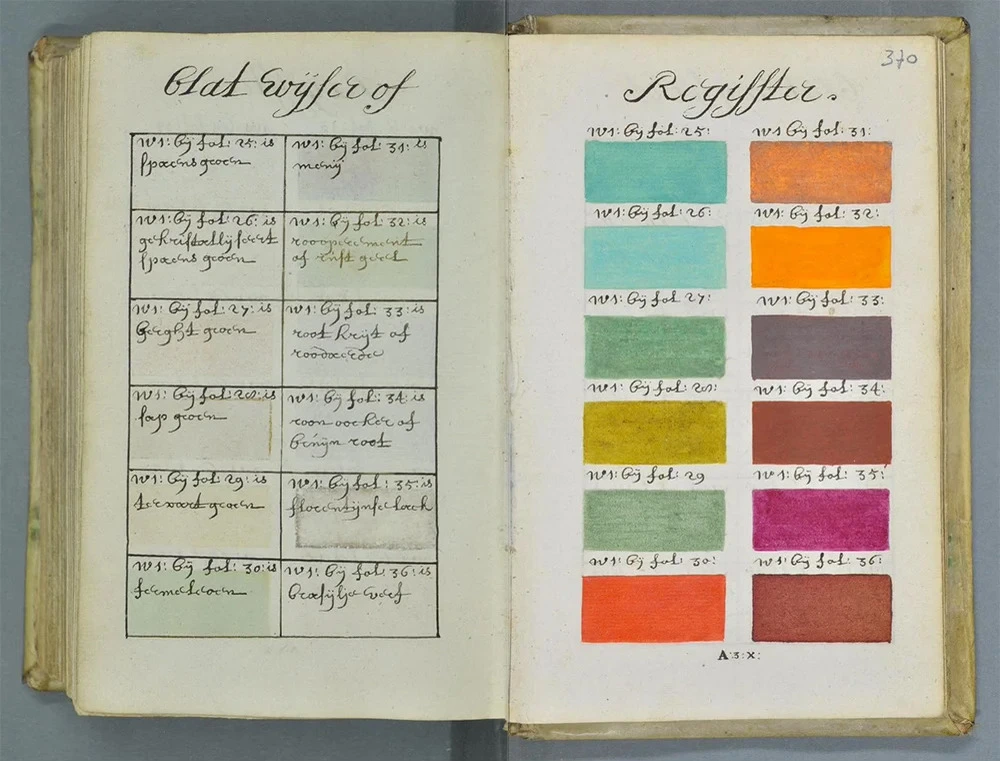 blat wijser of
w1: bij fol: 25: is
spaens groen
w1: bij fol: 31: is
menij
w1: bij fol: 26: is
gekristallijseert
spaens groen
w1: bij fol: 32: is
roooperement
of rust geel
w1: bij fol: 27: is
berght groen
w1: bij fol: 33: is
root krijt of
roodaerde
w1: bij fol: 28: is
sap groen
w1: bij fol: 34: is
roon oocker of
bruijn root
w1: bij fol: 29: is
terwart groen
w1: bij fol: 35: is
florentijnse lack
w1: bij fol: 30: is
w1: bij fol: 36: is
brasijlje verf
370
Regisster.
w1: bij fol: 25:
w1 bij fol: 31:
w1: bij fol: 26:
w1: bij fol: 32:
w1: bij fol: 27:
w1: bij fol: 33:
w1: bij fol: 28:
w1: bij fol: 34:
w1: bij fol: 29
w1: bij fol: 35:
w1: bij fol: 30:
w1: bij fol: 36:
A:3:X: